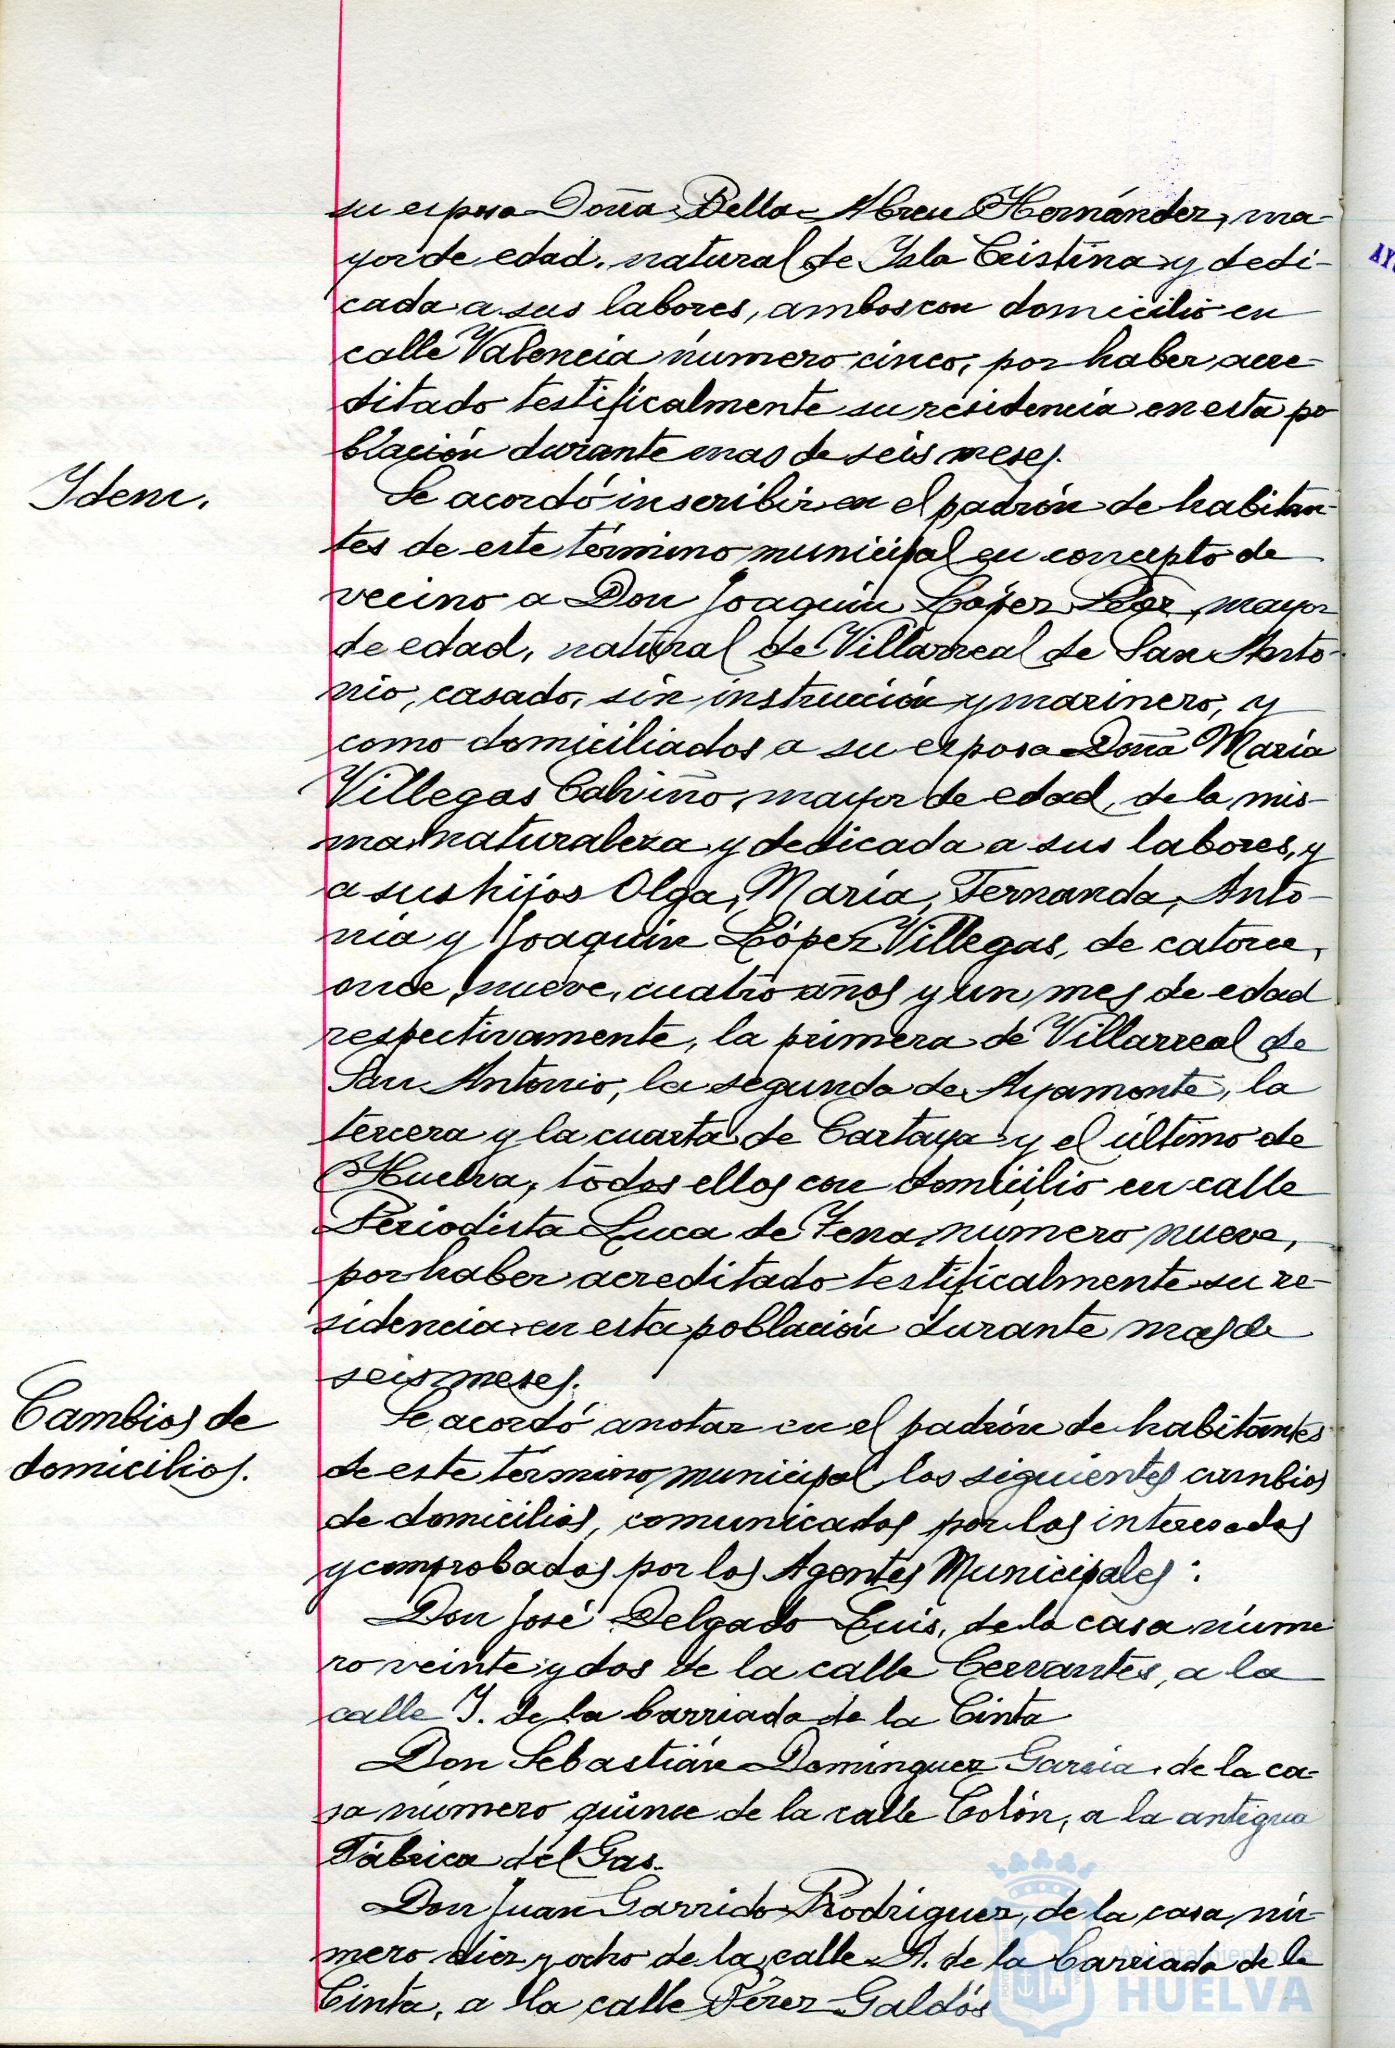 su esposa Doña Bella Abreu Hernández, ma-
yor de edad, natural de Isla Cristina y dedi-
cada a sus labores, ambos con domicilio en
calle Valencia número cinco, por haber acre-
ditado testificalmente su residencia en esta po
blación durante mas de seis meses.
Idem.
Se acordó inscribir en el padrón de habitan-
tes de este término municipal en concepto de
vecino a Don Joaquín López mayor
de edad, natural de Villarreal de San Anto-
nio, casado, sin instrucción y marinero, y
como domiciliados a su esposa Doña María
Villegas Calviño, mayor de edad, de la mis-
ma naturaleza y dedicada a sus labores, y
a sus hijos Olga, María, Fernanda, Anto-
nia y Joaquín López Villegas, de catorce,
once, nueve, cuatro años y un mes de edad
respectivamente, la primera de Villarreal de
San Antonio, la segunda de Ayamonte, la
tercera y la cuarta de Cartaya y el último de
Huelva, todos ellos con domicilio en calle
Periodista Luca de Tena, numero nueve,
por haber acreditado testificalmente su re-
sidencia en esta población durante mas de
seis meses.
Cambios de
domicilios.
Se acordó anotar en el padrón de habitantes
de este termino municipal los siguientes cambios
de domicilios, comunicados por los interesados
y comprobados por los Agentes Municipales:
Don José Delgado Luis, de la casa núme
ro veinte y dos de la calle Cervantes, a la
calle J. de la barriada de la Cinta
Don Sebastián Domínguez García, de la ca-
sa número quince de la calle Colón, a la antigua
Fábrica del Gas.
Don Juan Garrido Rodríguez, de la casa nú-
mero diez y ocho de la calle A. de la barriada de la
Cinta, a la calle Pérez Galdós
Ayuntamiento de
HUELVA
AY